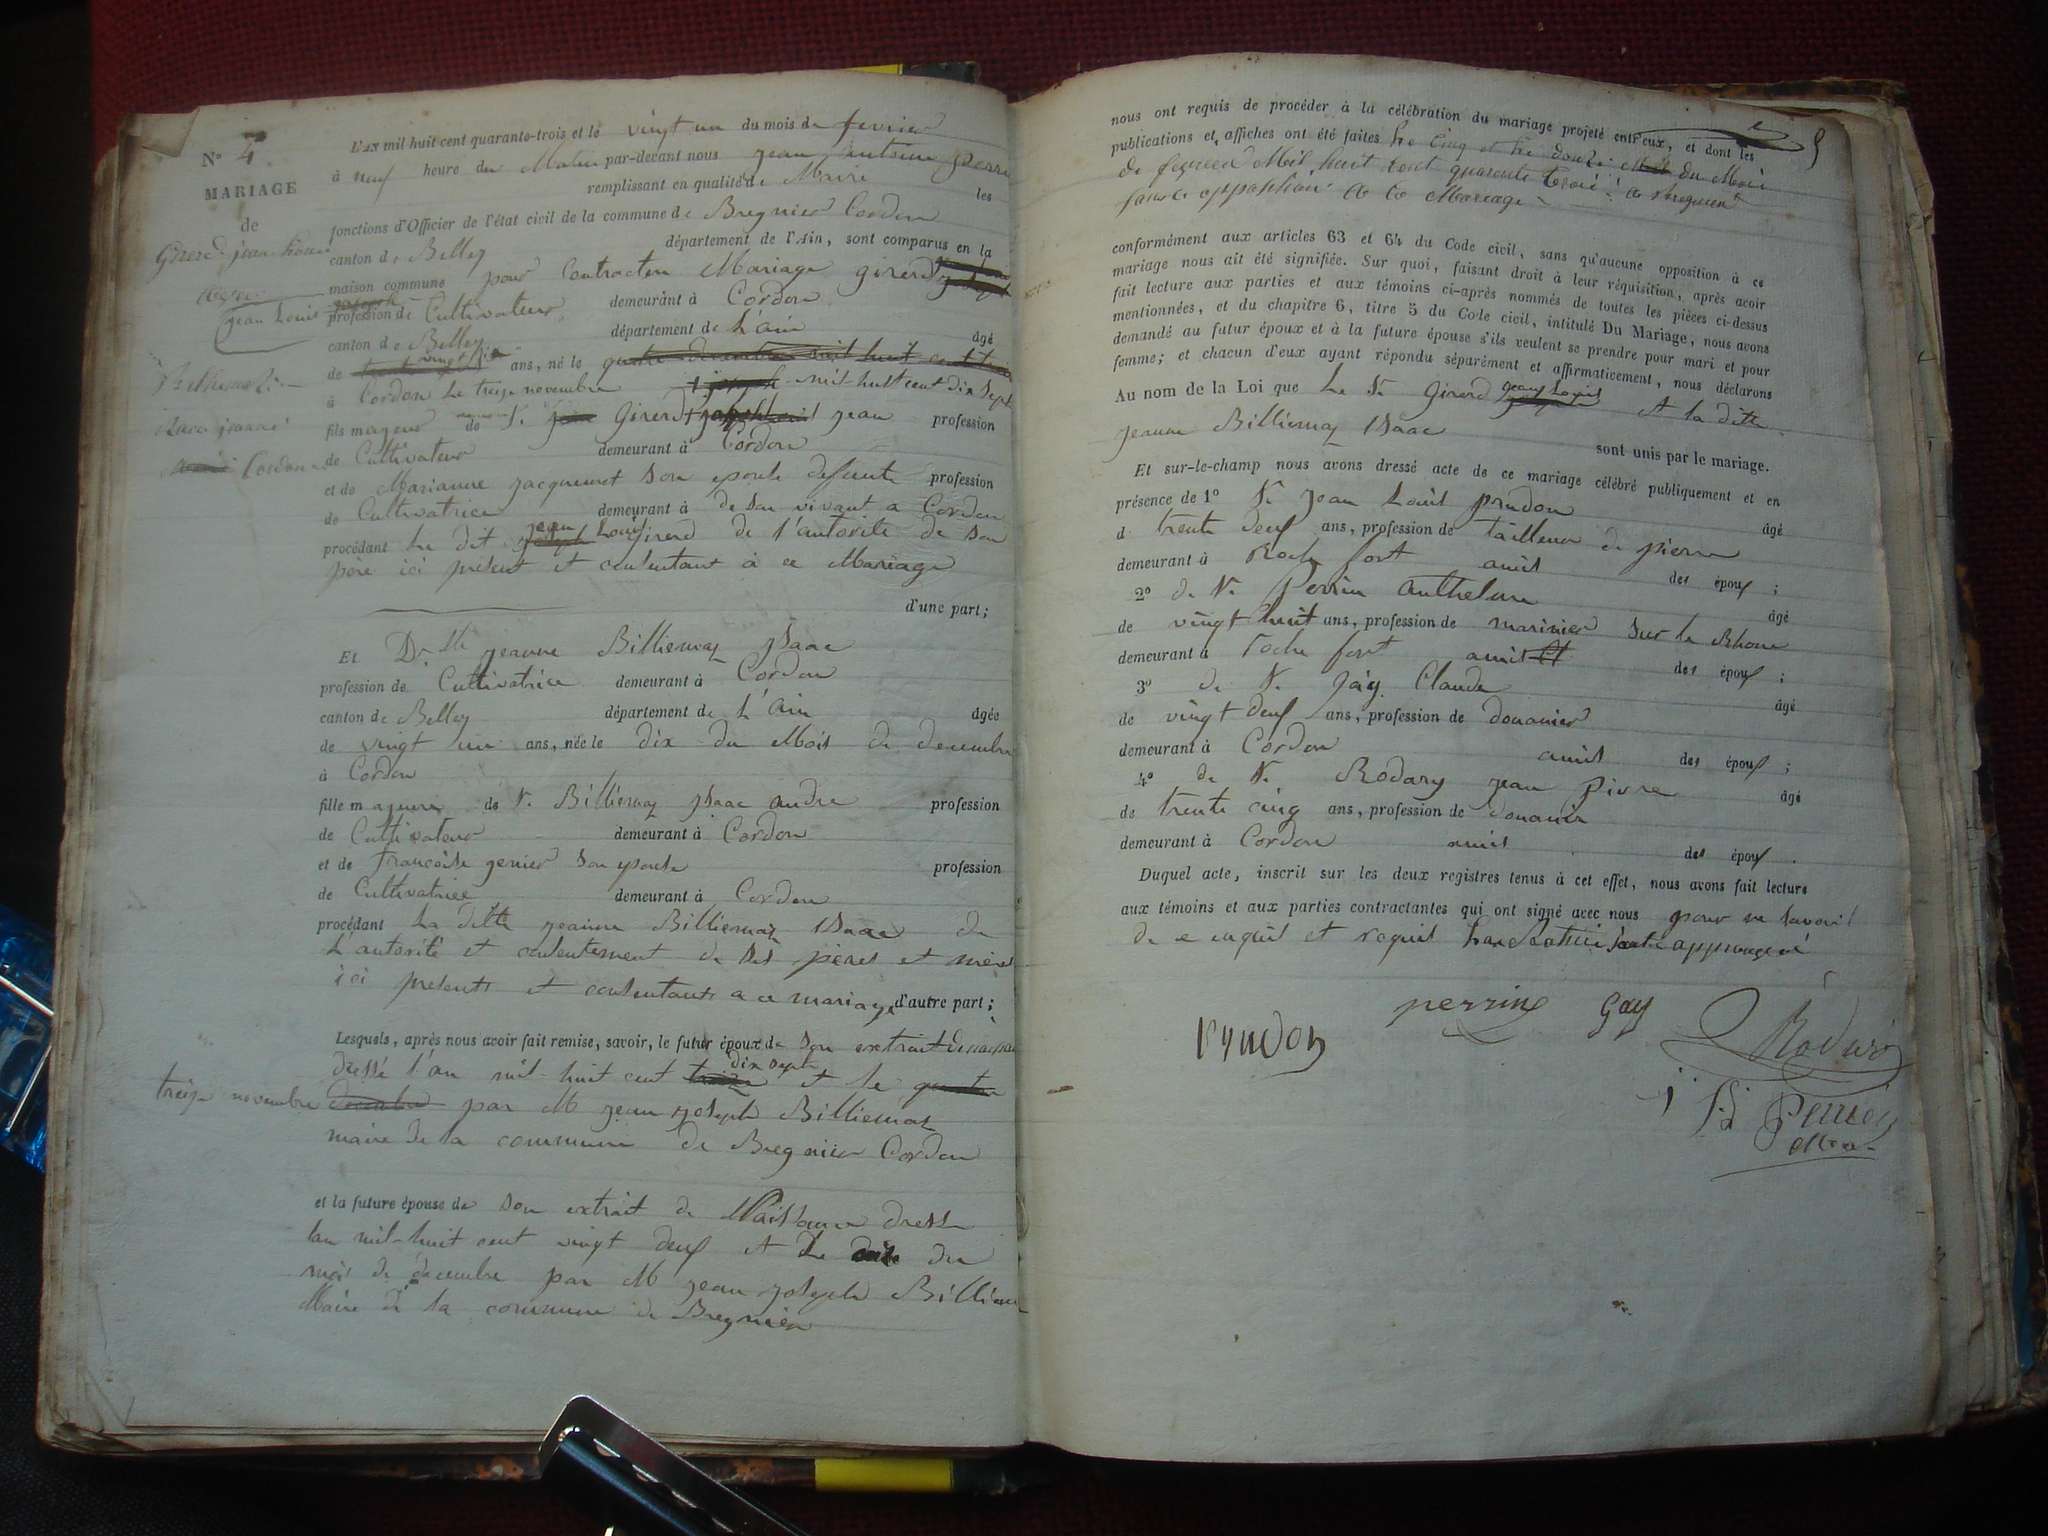 N° 4.
MARIAGE
de
Girerd jean Louis
Billiemaz
Isaac jeanne
Cordon
L'AN mil huit cent quarante-trois et le vingt un du mois de fevrier
à neuf heure du Matin par-devant nous jean antoine
remplissant en qualité de Maire les
fonctions d'Officier de l'état civil de la commune de Bregnier Cordon
canton de Belley département de l'Ain, sont comparus en la
maison commune pour Contracter Mariage girerd
jean Louis profession de Cultivateur demeurant à Cordon
canton de Belley département de L'ain âgé
de vingt six ans, né le
à Cordon le treize novembre mil huit cent dix sept
fils mageur de S. Girerd jean profession
de Cultivateur demeurant à Cordon
et de Marianne jacquemet son epouse defunte profession
de Cultivatrice demeurant à de son vivant a Cordon
procédant Le dit jean Louis Girerd de l'autorite de son
père ici present et consentant à ce Mariage
d'une part;
Et D.lle jeanne Billiemaz Isaac
profession de Cultivatrice demeurant à Cordon
canton de Belley département de L'ain âgée
de vingt un ans, née le dix du Mois de decembre
à Cordon
fille mageure de S. Billiemaz Isaac andre profession
de Cultivateur demeurant à Cordon
et de françoise genier son epouse profession
de Cultivatrice demeurant à Cordon
procédant La ditte jeanne Billiemaz Isaac de
L'autorité et consentement de ses pères et mère
ici presents et consentants a ce mariage d'autre part;
Lesquels, après nous avoir fait remise, savoir, le futur époux de son extrait de naissance
dressé l'an mil huit cent dix sept et le
treize novembre par M jean joseph Billiemaz
maire de la commune de Bregnier Cordon
et la future épouse de son extrait de Naissance dressé
lan mil-huit cent vingt deux et Le du
mois de decembre par M jean joseph Billiemaz
Maire de la commune de Bregnier
nous ont requis de procéder à la célébration du mariage projeté entr'eux, et dont les
publications et affiches ont été faites Le Cinq et Le douze du Mois
de fevrier Mil huit cent quarante trois
sans opposition a ce Mariage
conformément aux articles 63 et 64 du Code civil, sans qu'aucune opposition à ce
mariage nous ait été signifiée. Sur quoi, faisant droit à leur réquisition, après avoir
fait lecture aux parties et aux témoins ci-après nommés de toutes les pièces ci-dessus
mentionnées, et du chapitre 6, titre 5 du Code civil, intitulé Du Mariage, nous avons
demandé au futur époux et à la future épouse s'ils veulent se prendre pour mari et pour
femme; et chacun d'eux ayant répondu séparément et affirmativement, nous déclarons
Au nom de la Loi que Le S. Girerd jean Louis et la ditte
jeanne Billiemaz Isaac
sont unis par le mariage.
Et sur-le-champ nous avons dressé acte de ce mariage célébré publiquement et en
présence de 1° S. jean Louis prudon âgé
d trente deux ans, profession de tailleur de pierre
demeurant à Roche fort amis des époux;
2° de S. Perrin anthelme âgé
de vingt huit ans, profession de marinier sur le Rhone
demeurant à roche fort amis des époux;
3° de S. Jay Claude âgé
de vingt deux ans, profession de douanier
demeurant à Cordon amis des époux;
4° de S. Rodary jean pierre âgé
de trente cinq ans, profession de douanier
demeurant à Cordon amis des époux.
Duquel acte, inscrit sur les deux registres tenus à cet effet, nous avons fait lecture
aux témoins et aux parties contractantes qui ont signé avec nous pour ne savoir
de ce enquis et requis
prudon
perrin
Jay
Rodary